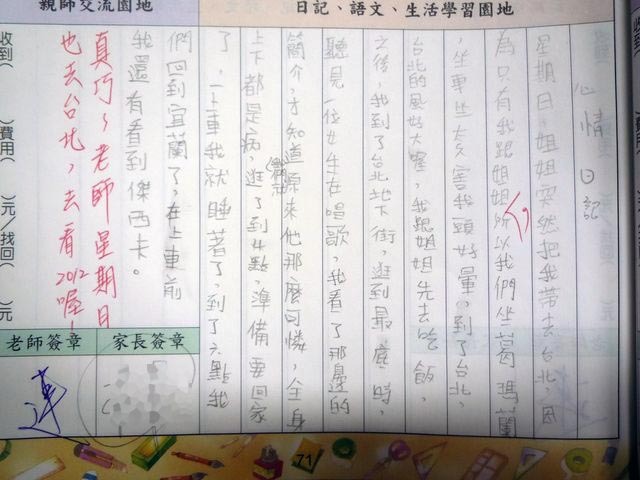 日記、語文、生活學習園地
心情日記
星期日,姐姐突然把我帶去台北,因
為只有我跟姐姐所以我們坐葛瑪蘭
,坐車坐太久害我頭好暈,到了台北,
台北的風好大喔,我跟姐姐先去吃飯,
之後,我到了台北地下街,逛到最底時,
聽見一位女生在唱歌,我看了那邊的
簡介,才知道原來他那麼可憐,全身
上下都是病,逛了到4點,準備要回家
了,一上車我就睡著了,到了六點我
們回到宜蘭了,在上車前
我還有看到傑西卡。
親師交流園地
真巧~老師星期日
也去台北,去看2012喔!
收到( )費用( )元/找回( )元
家長簽章
老師簽章
71